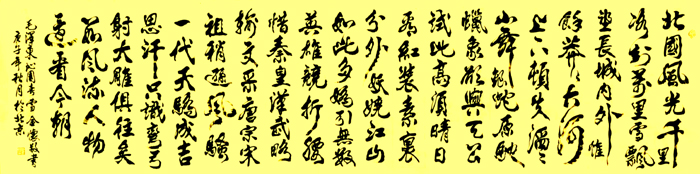 北國風光千里
冰封萬里雪飄
望長城內外惟
餘莽莽大河
上下頓失滔滔
山舞銀蛇原馳
蠟象欲與天公
試比高須晴日
看紅裝素裹
分外妖嬈江山
如此多嬌引無數
英雄競折腰
惜秦皇漢武略
輸文采唐宗宋
祖稍遜風騷
一代天驕成吉
思汗只識彎弓
射大雕俱往矣
數風流人物
還看今朝
毛澤東沁園春雪
庚午年秋月於北京